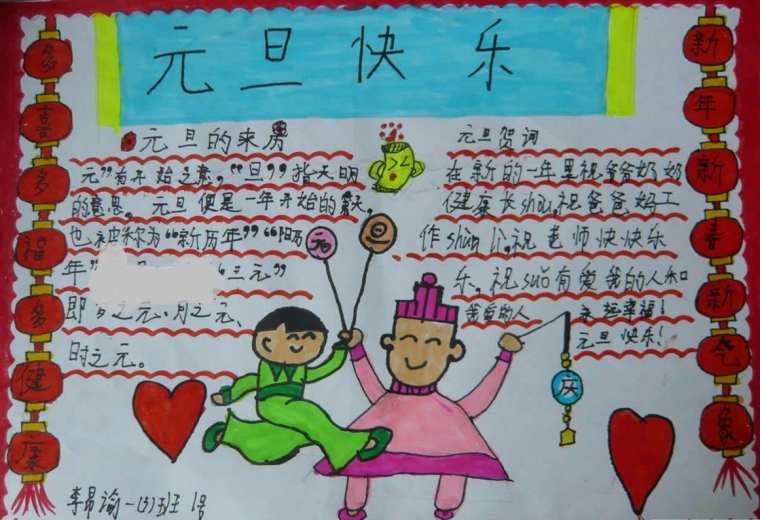 元旦快乐
多喜多福多健康
新年新春新气象
元旦的来历
元”有开始之意，“旦”指天明
的意思。元旦便是一年开始的第一天。
也被称为“新历年”“阳历
年”
“三元”
即岁之元、月之元、
时之元。
元旦贺词
在新的一年里祝爷爷奶奶
健康长shòu。祝爸爸妈工
作shùn lì。祝老师快快乐
乐。祝suǒ有爱我的人和
我爱的人
永远幸福！
元旦快乐！
元
旦
庆
李昂谕一(3)班 1号